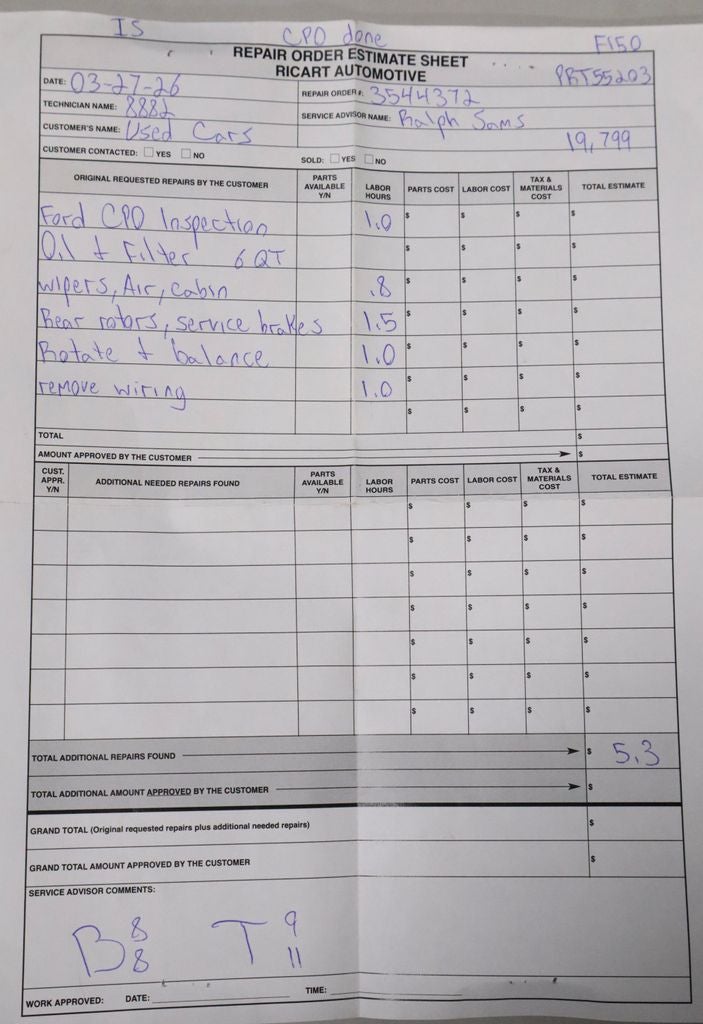 IS
CPO done
F150
REPAIR ORDER ESTIMATE SHEET
RICART AUTOMOTIVE
PBT55203
DATE: 03-27-26
REPAIR ORDER #: 3544372
TECHNICIAN NAME: 8882
SERVICE ADVISOR NAME: Ralph Sams
CUSTOMER'S NAME: Used Cars
19,799
CUSTOMER CONTACTED: YES NO
SOLD: YES NO
ORIGINAL REQUESTED REPAIRS BY THE CUSTOMER PARTS AVAILABLE Y/N LABOR HOURS PARTS COST LABOR COST TAX & MATERIALS COST TOTAL ESTIMATE
Ford CPO Inspection 1.0 $ $ $ $
Oil + Filter 6 QT $ $ $ $
wipers, Air, cabin .8 $ $ $ $
Rear rotors, service brakes 1.5 $ $ $ $
Rotate + balance 1.0 $ $ $ $
remove wiring 1.0 $ $ $ $
$ $ $ $
TOTAL $
AMOUNT APPROVED BY THE CUSTOMER $
CUST. APPR. Y/N ADDITIONAL NEEDED REPAIRS FOUND PARTS AVAILABLE Y/N LABOR HOURS PARTS COST LABOR COST TAX & MATERIALS COST TOTAL ESTIMATE
$ $ $ $
$ $ $ $
$ $ $ $
$ $ $ $
$ $ $ $
$ $ $ $
$ $ $ $
TOTAL ADDITIONAL REPAIRS FOUND $ 5.3
TOTAL ADDITIONAL AMOUNT APPROVED BY THE CUSTOMER $
GRAND TOTAL (Original requested repairs plus additional needed repairs) $
GRAND TOTAL AMOUNT APPROVED BY THE CUSTOMER $
SERVICE ADVISOR COMMENTS:
B 8 8 T 9 11
WORK APPROVED: DATE: TIME: